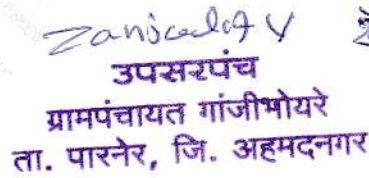 उपसरपंच
ग्रामपंचायत गांजीभोयरे
ता. पारनेर, जि. अहमदनगर